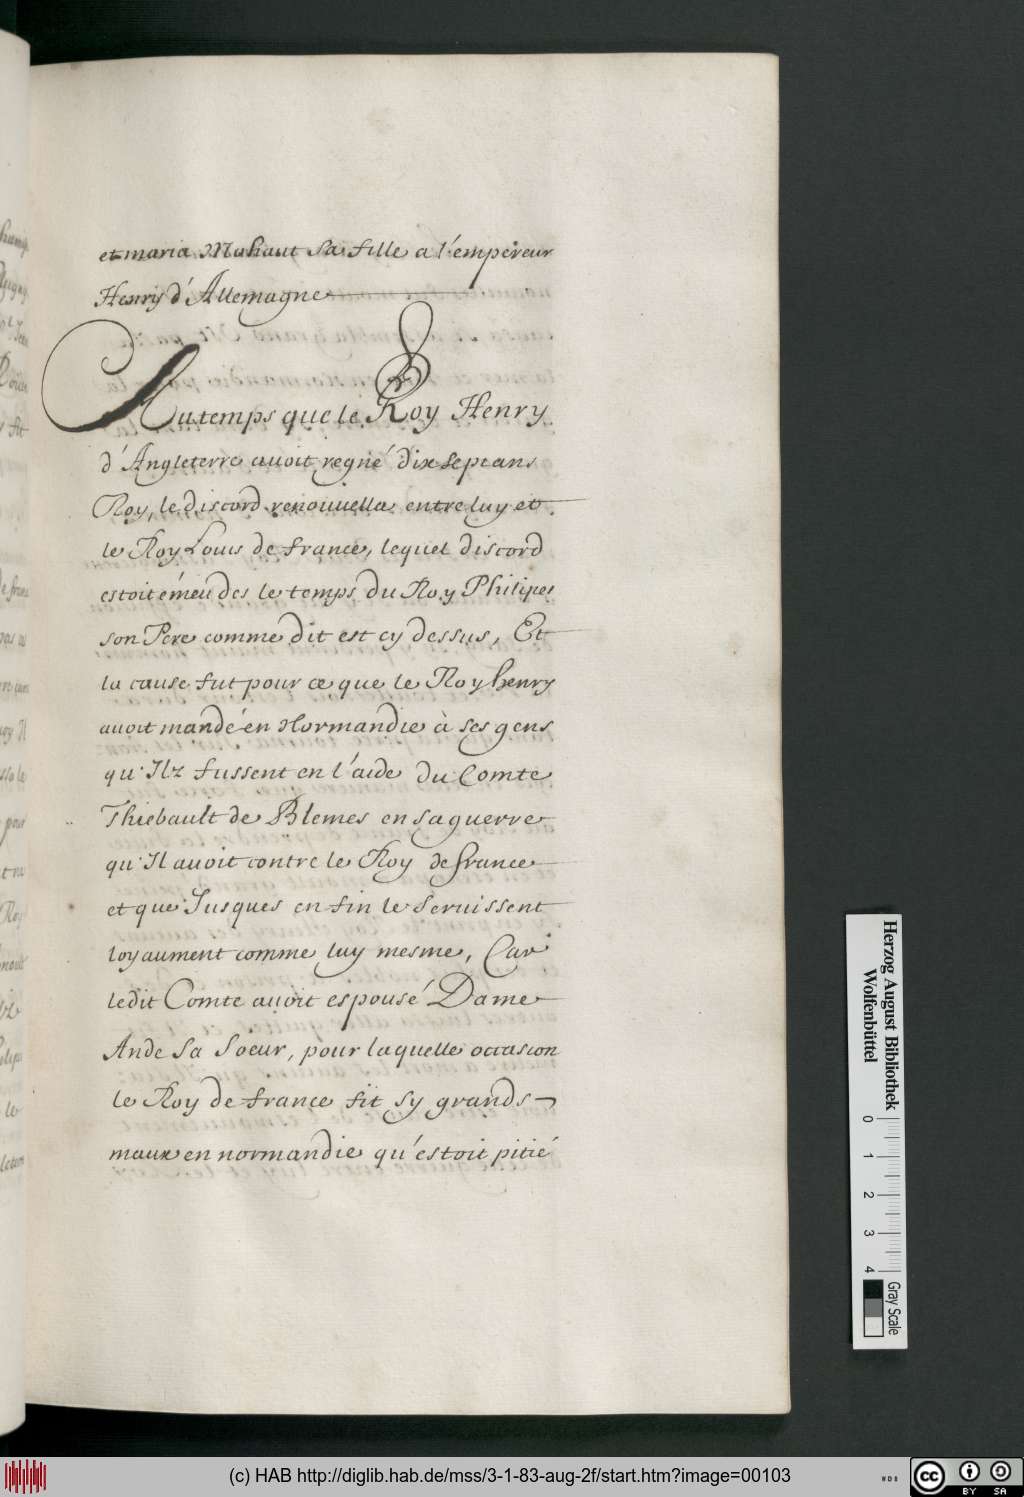 et maria Mahaut sa fille a l'empereur
Henry d'Allemagne
Au temps que le Roy Henry
d'Angleterre avoit regné dix sept ans
Roy, le discord renouuella entre luy et
le Roy Louis de france, lequel discord
estoit émeu des le temps du Roy Philipes
son Pere comme dit est cy dessus, Et
la cause fut pour ce que le Roy henry
auoit mandé en Normandie à ses gens
qu'Ilz fussent en l'aide du Comte
Thiebault de Blemes en sa guerre
qu'Il auoit contre le Roy de france
et que Jusques en fin le seruissent
loyaument comme luy mesme, Car
ledit Comte auoit espousé Dame
Ande sa soeur, pour laquelle occasion
le Roy de france fit sy grands
maux en normandie qu'estoit pitié
Herzog August Bibliothek
Wolfenbüttel
0 1 2 3 4
Gray Scale
(c) HAB http://diglib.hab.de/mss/3-1-83-aug-2f/start.htm?image=00103
WDB
cc BY SA